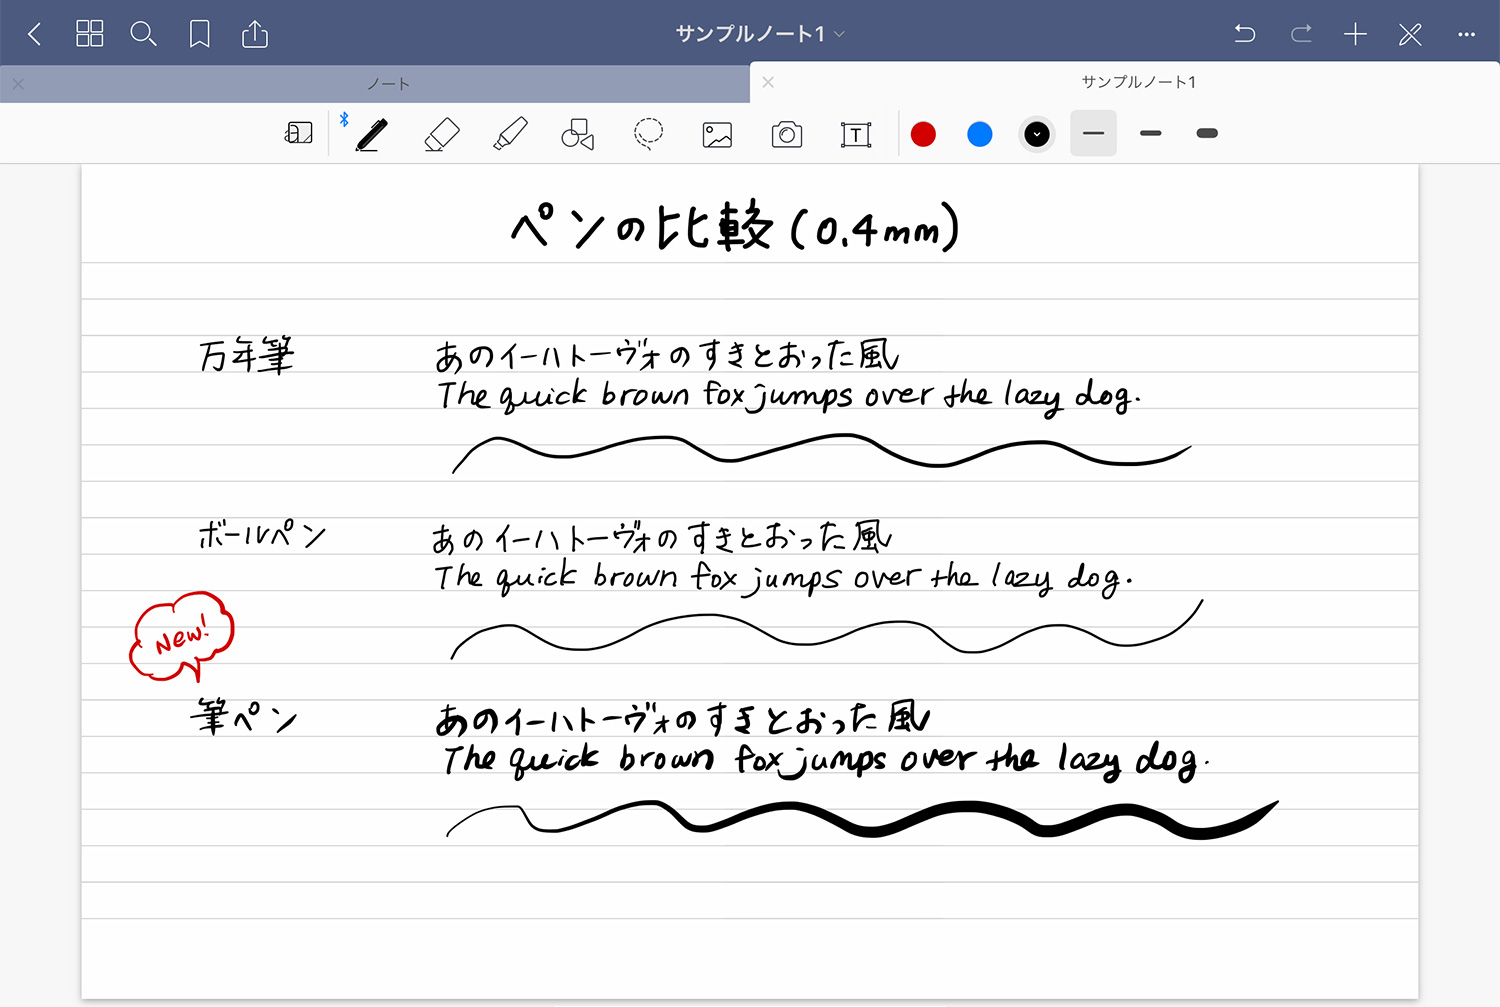 サンプルノート1
ノート
サンプルノート1
T
ペンの比較(0.4mm)
万年筆
あのイーハトーヴォのすきとおった風
The quick brown fox jumps over the lazy dog.
ボールペン
あのイーハトーヴォのすきとおった風
The quick brown fox jumps over the lazy dog.
New!
筆ペン
あのイーハトーヴォのすきとおった風
The quick brown fox jumps over the lazy dog.